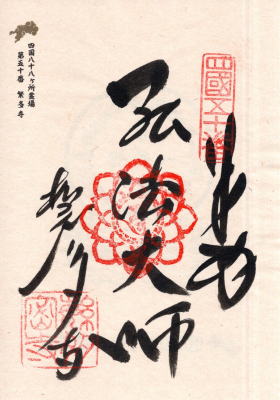 四国八十八ヶ所霊場
第五十番 繁多寺
四國五十番
奉納
弘法大師
繁多寺